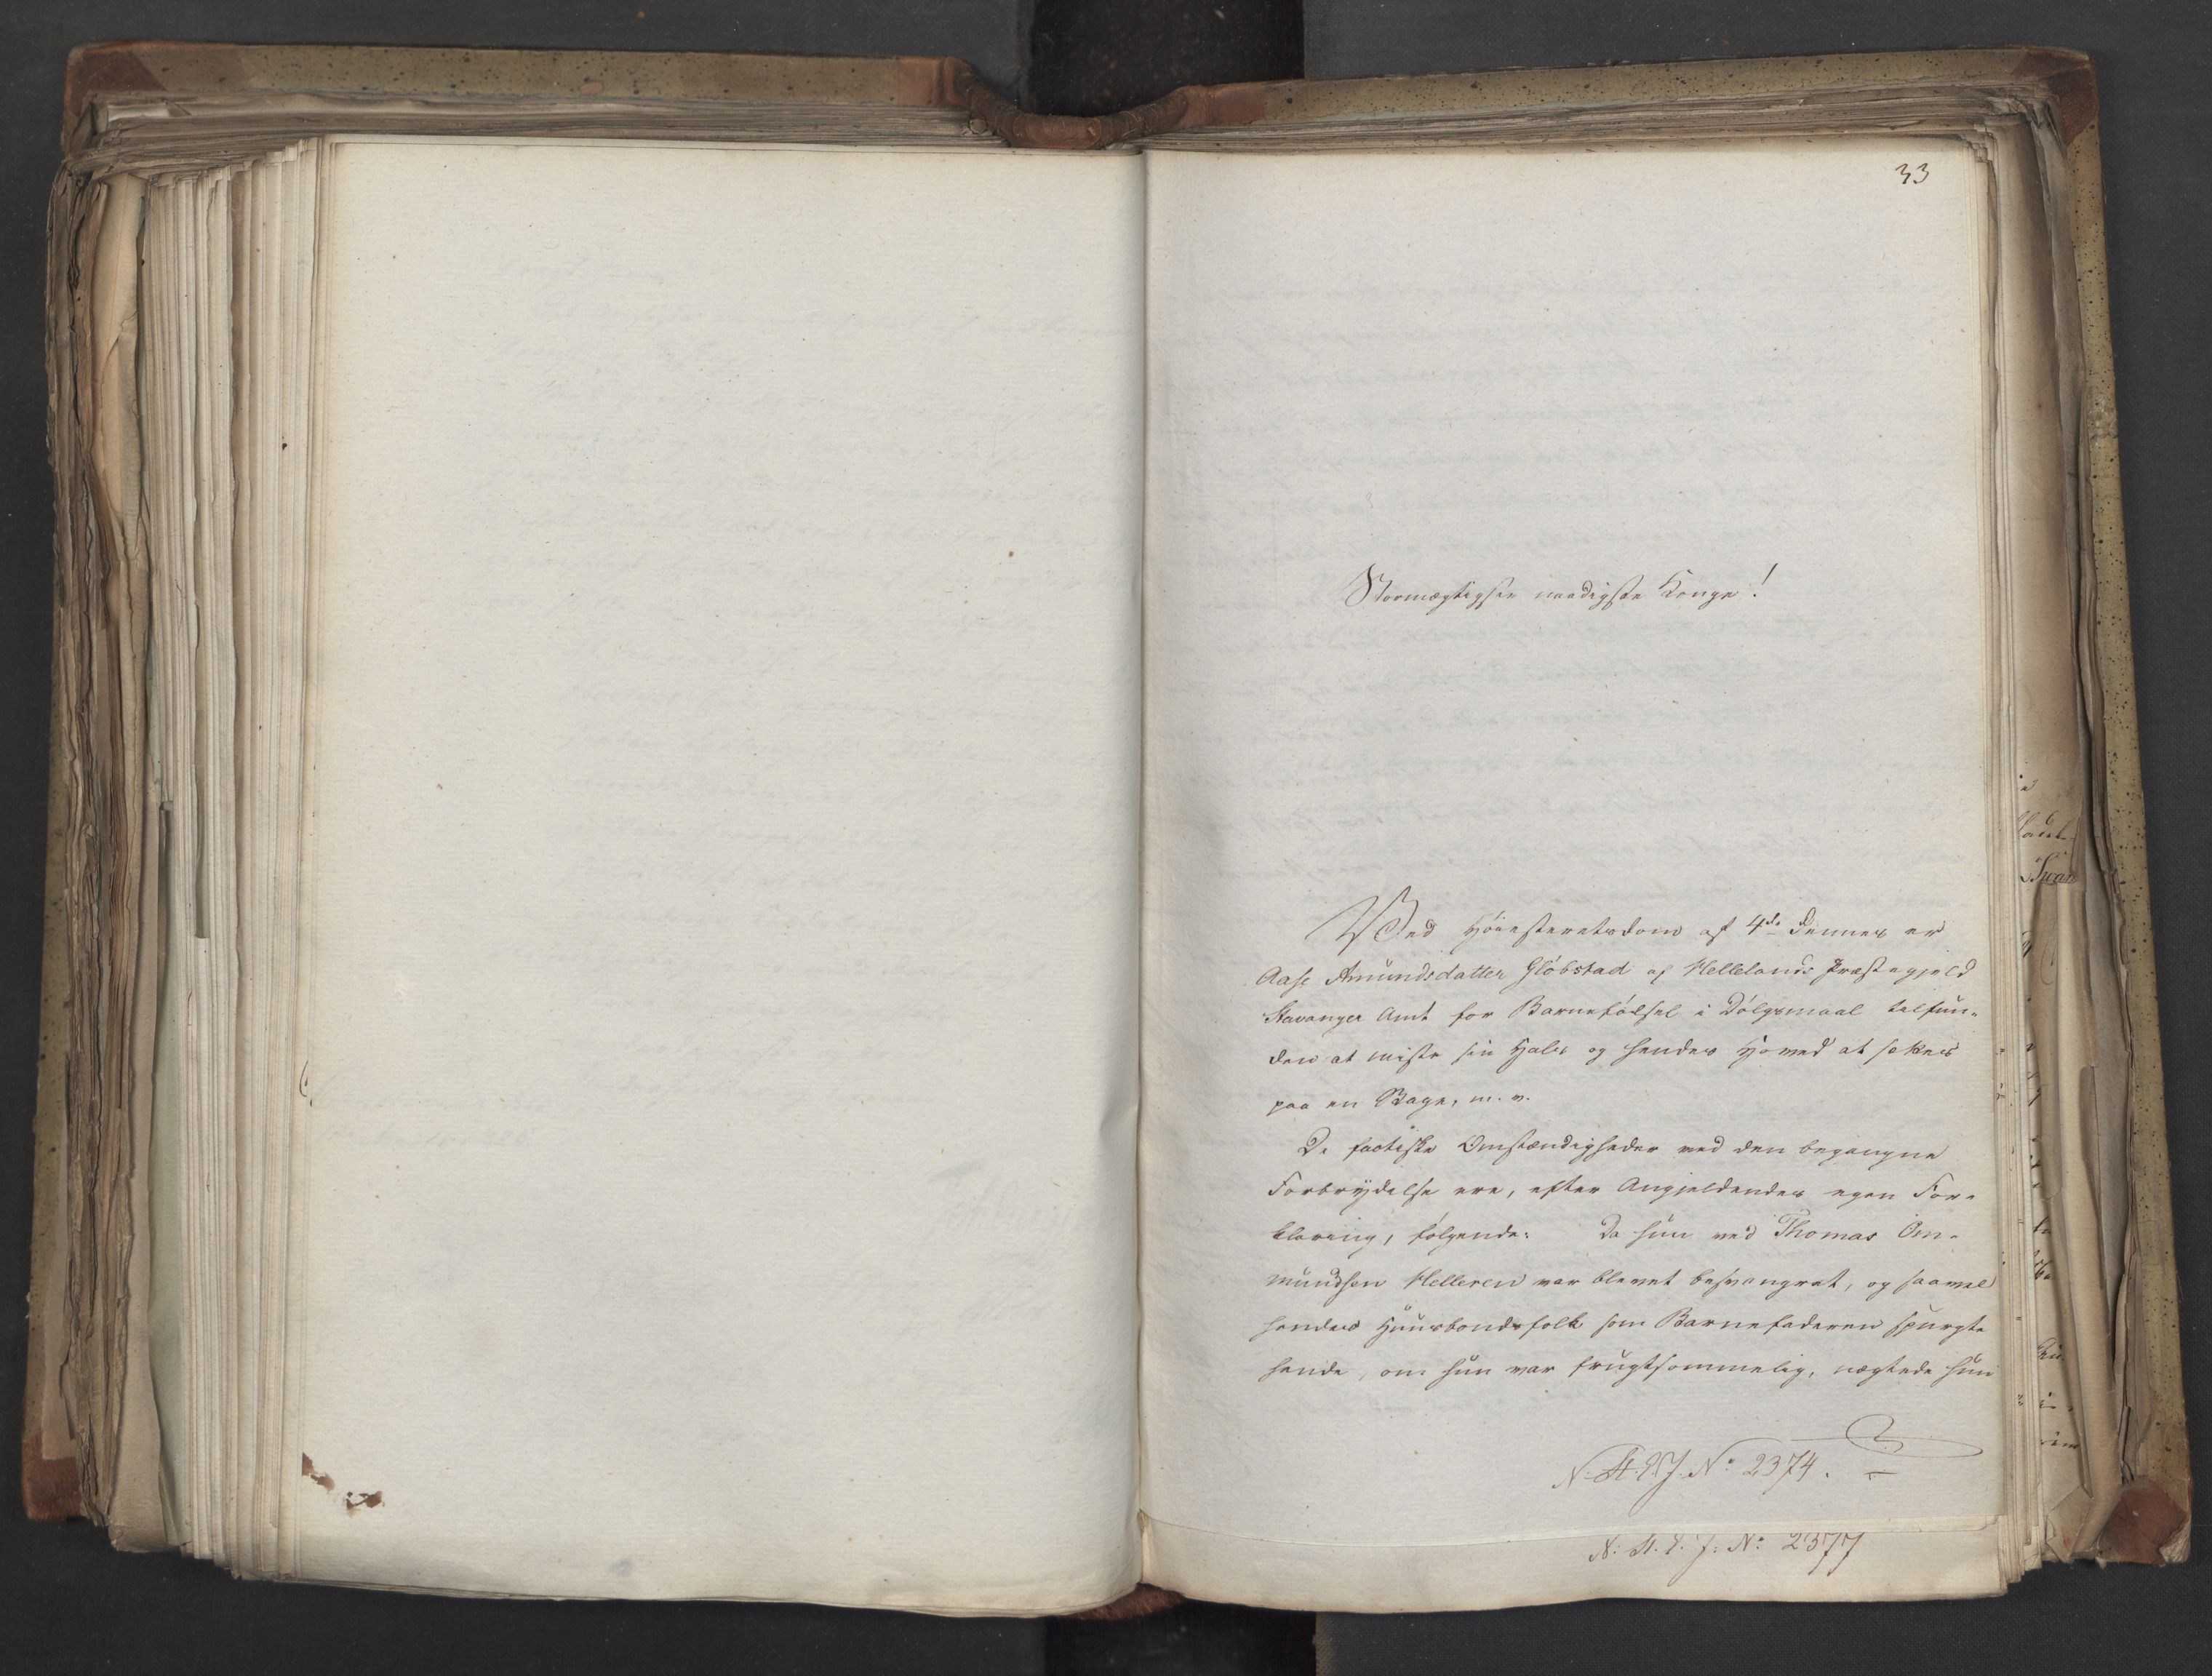 33
Stormægtigste naadigste Konge!
Ved Høiesteretsdom af 4de dennes er
Aase Amundsdatter Gløbstad af Hellelands Præstegjeld
Stavanger Amt for Barnefødsel i Dølgsmaal tilfun-
den at miste sin Hals og hendes Hoved at sættes
paa en Stage, m. v.
De factiske Omstændigheder ved den begangne
Forbrydelse ere, efter Angjeldendes egen For-
klaring, følgende: Da hun ved Thomas Om-
mundsen Helleren var blevet besvangret, og saavel
hendes Huusbondsfolk som Barnefaderen spurgte
hende, om hun var frugtsommelig, nægtede hun
N. St. E. J. No 2374.
N: St. E. J: No: 2377